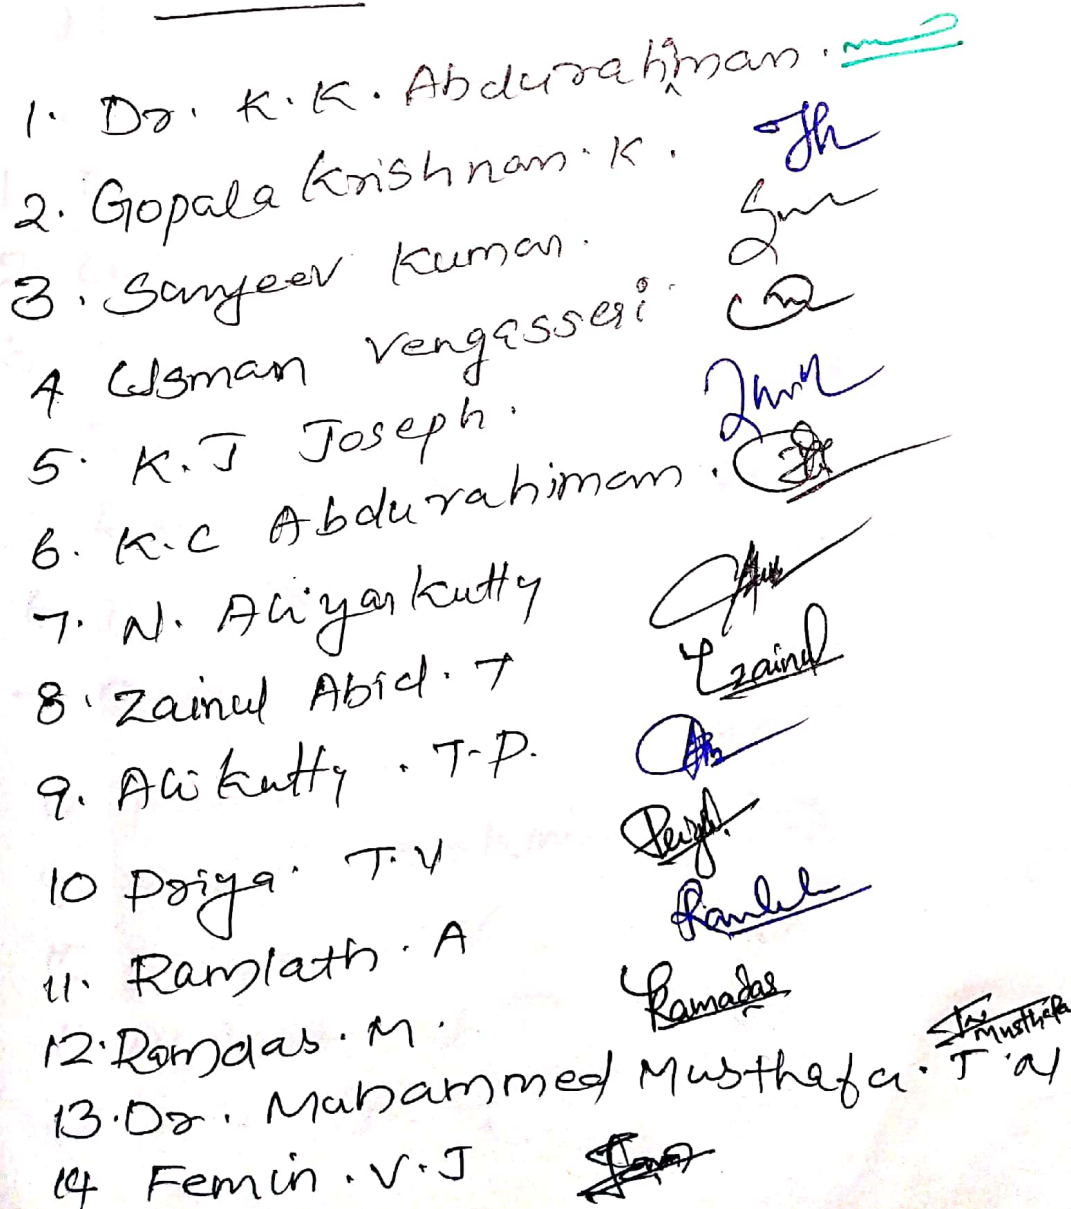 1. Dr. K.K. Abdurahiman.
2. Gopala Krishnan. K.
3. Sanjeev Kumar.
4 Usman Vengasseri
5. K.J Joseph.
6. K.C Abdurahiman.
7. N. Aliyarkutty
8. Zainul Abid. T zainul
9. Alikutty. T.P.
10 Priya. T.V Priya
11. Ramlath. A
12. Ramdas. M. Ramadas
13. Dr. Muhammed Musthafa. T Musthafa
14 Femin. V.J